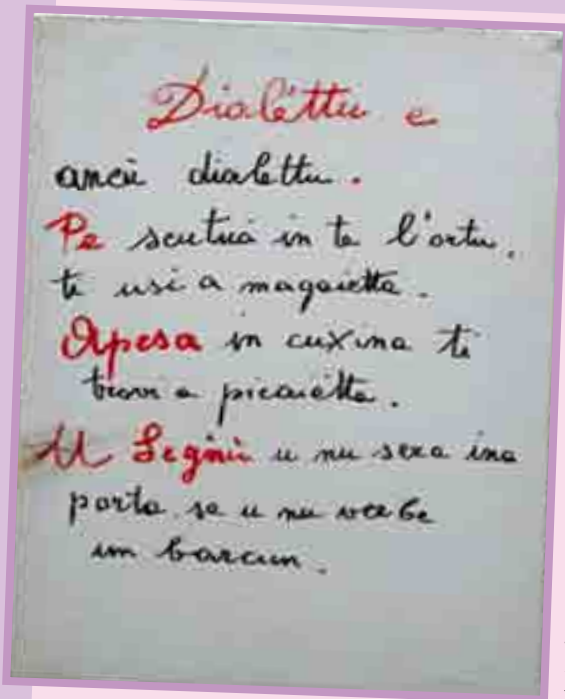 Dialèttu e
ancù dialettu.
Pe scutuà in te l'ortu,
ti usi a magaietta.
Apesa in cuxina ti
trovi a picaiètta.
U Segnù u nu sera ina
porta se u nu
un barcun.